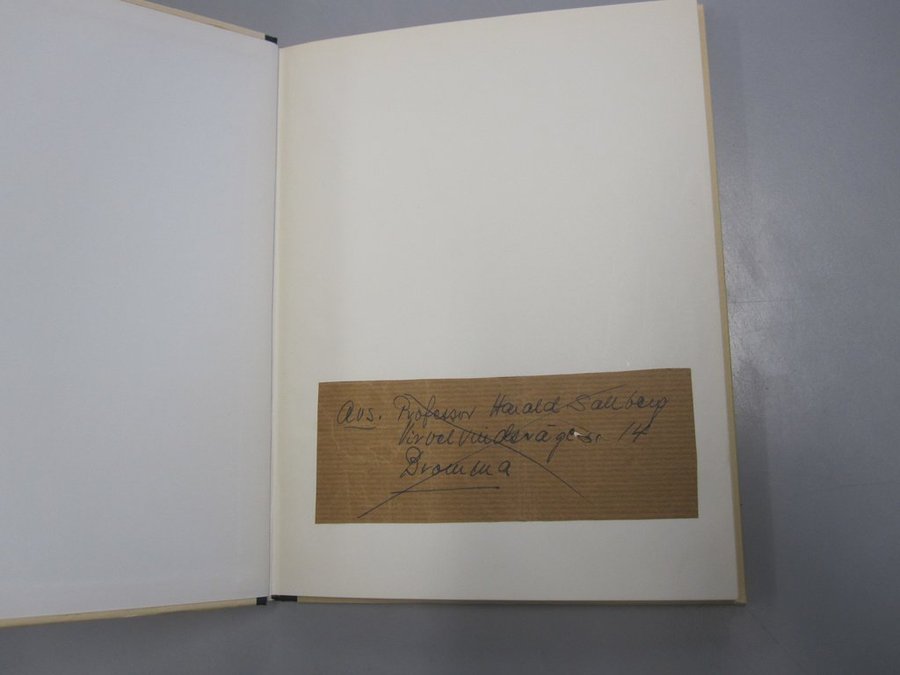 Avs. Professor Harald Sallberg
Virvelvindsvägen 14
Bromma